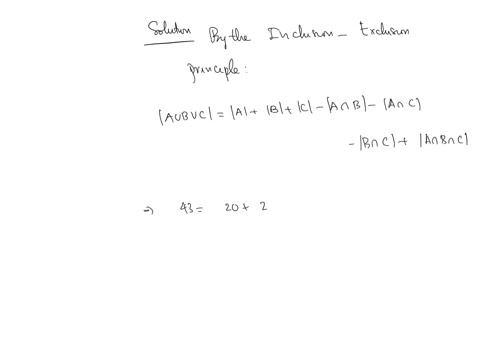 Solution By the Inclusion - Exclusion
principle:
|A∪B∪C| = |A| + |B| + |C| - |A∩B| - |A∩C|
- |B∩C| + |A∩B∩C|
⇒ 43 = 20 + 2